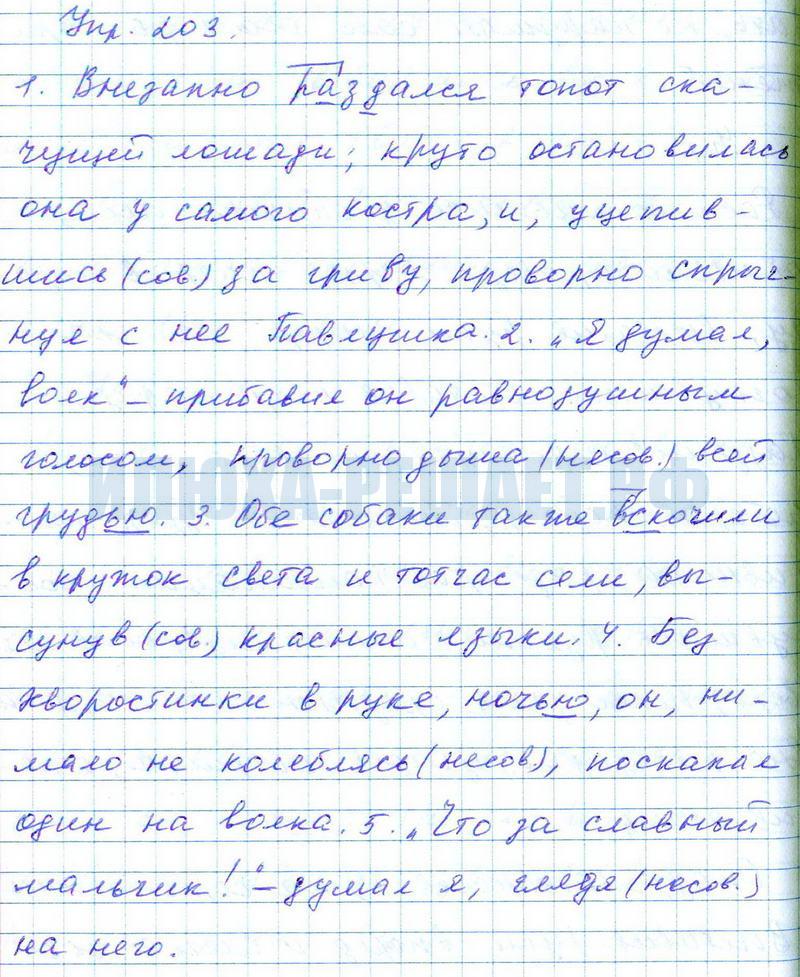 Упр. 203.
1. Внезапно раздался топот ска-
чущей лошади; круто остановилась
она у самого костра, и, уцепив-
шись (сов.) за гриву, проворно спрыг-
нул с нее Павлушка. 2. „Я думал,
волк" – прибавил он равнодушным
голосом, проворно дыша (несов.) всей
ИЛЮХА-РЕШАЕТ.РФ
грудью. 3. Обе собаки также вскочили
в кружок света и тотчас сели, вы-
сунув (сов.) красные языки. 4. Без
хворостинки в руке, ночью, он, ни-
мало не колеблясь (несов.), поскакал
один на волка. 5. „Что за славный
мальчик!" – думал я, глядя (несов.)
на него.